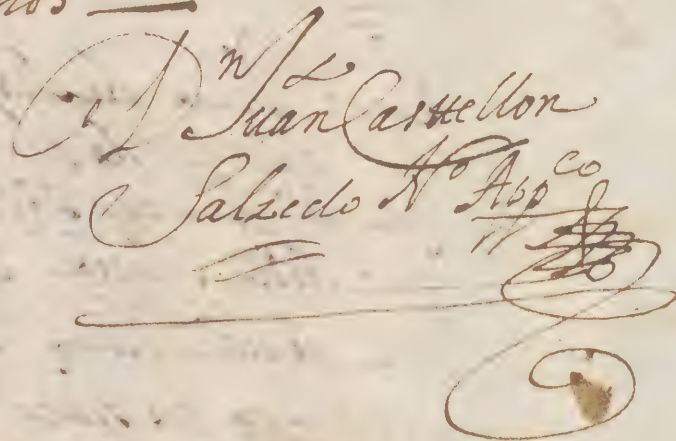 Dn Juan Castellon
Salzedo No App co